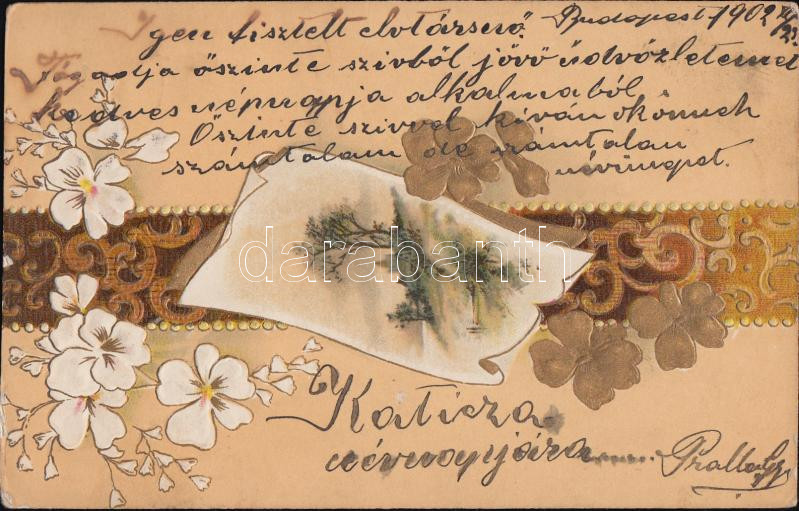 Igen tisztelt elvtársnő. Budapest 1902
Fogadja őszinte szívből jövő üdvözletemet
kedves névnapja alkalmából.
Őszinte szívvel kívánok önnek
számtalan de számtalan
névünnepet.
darabanth
Katicza
névnapjára